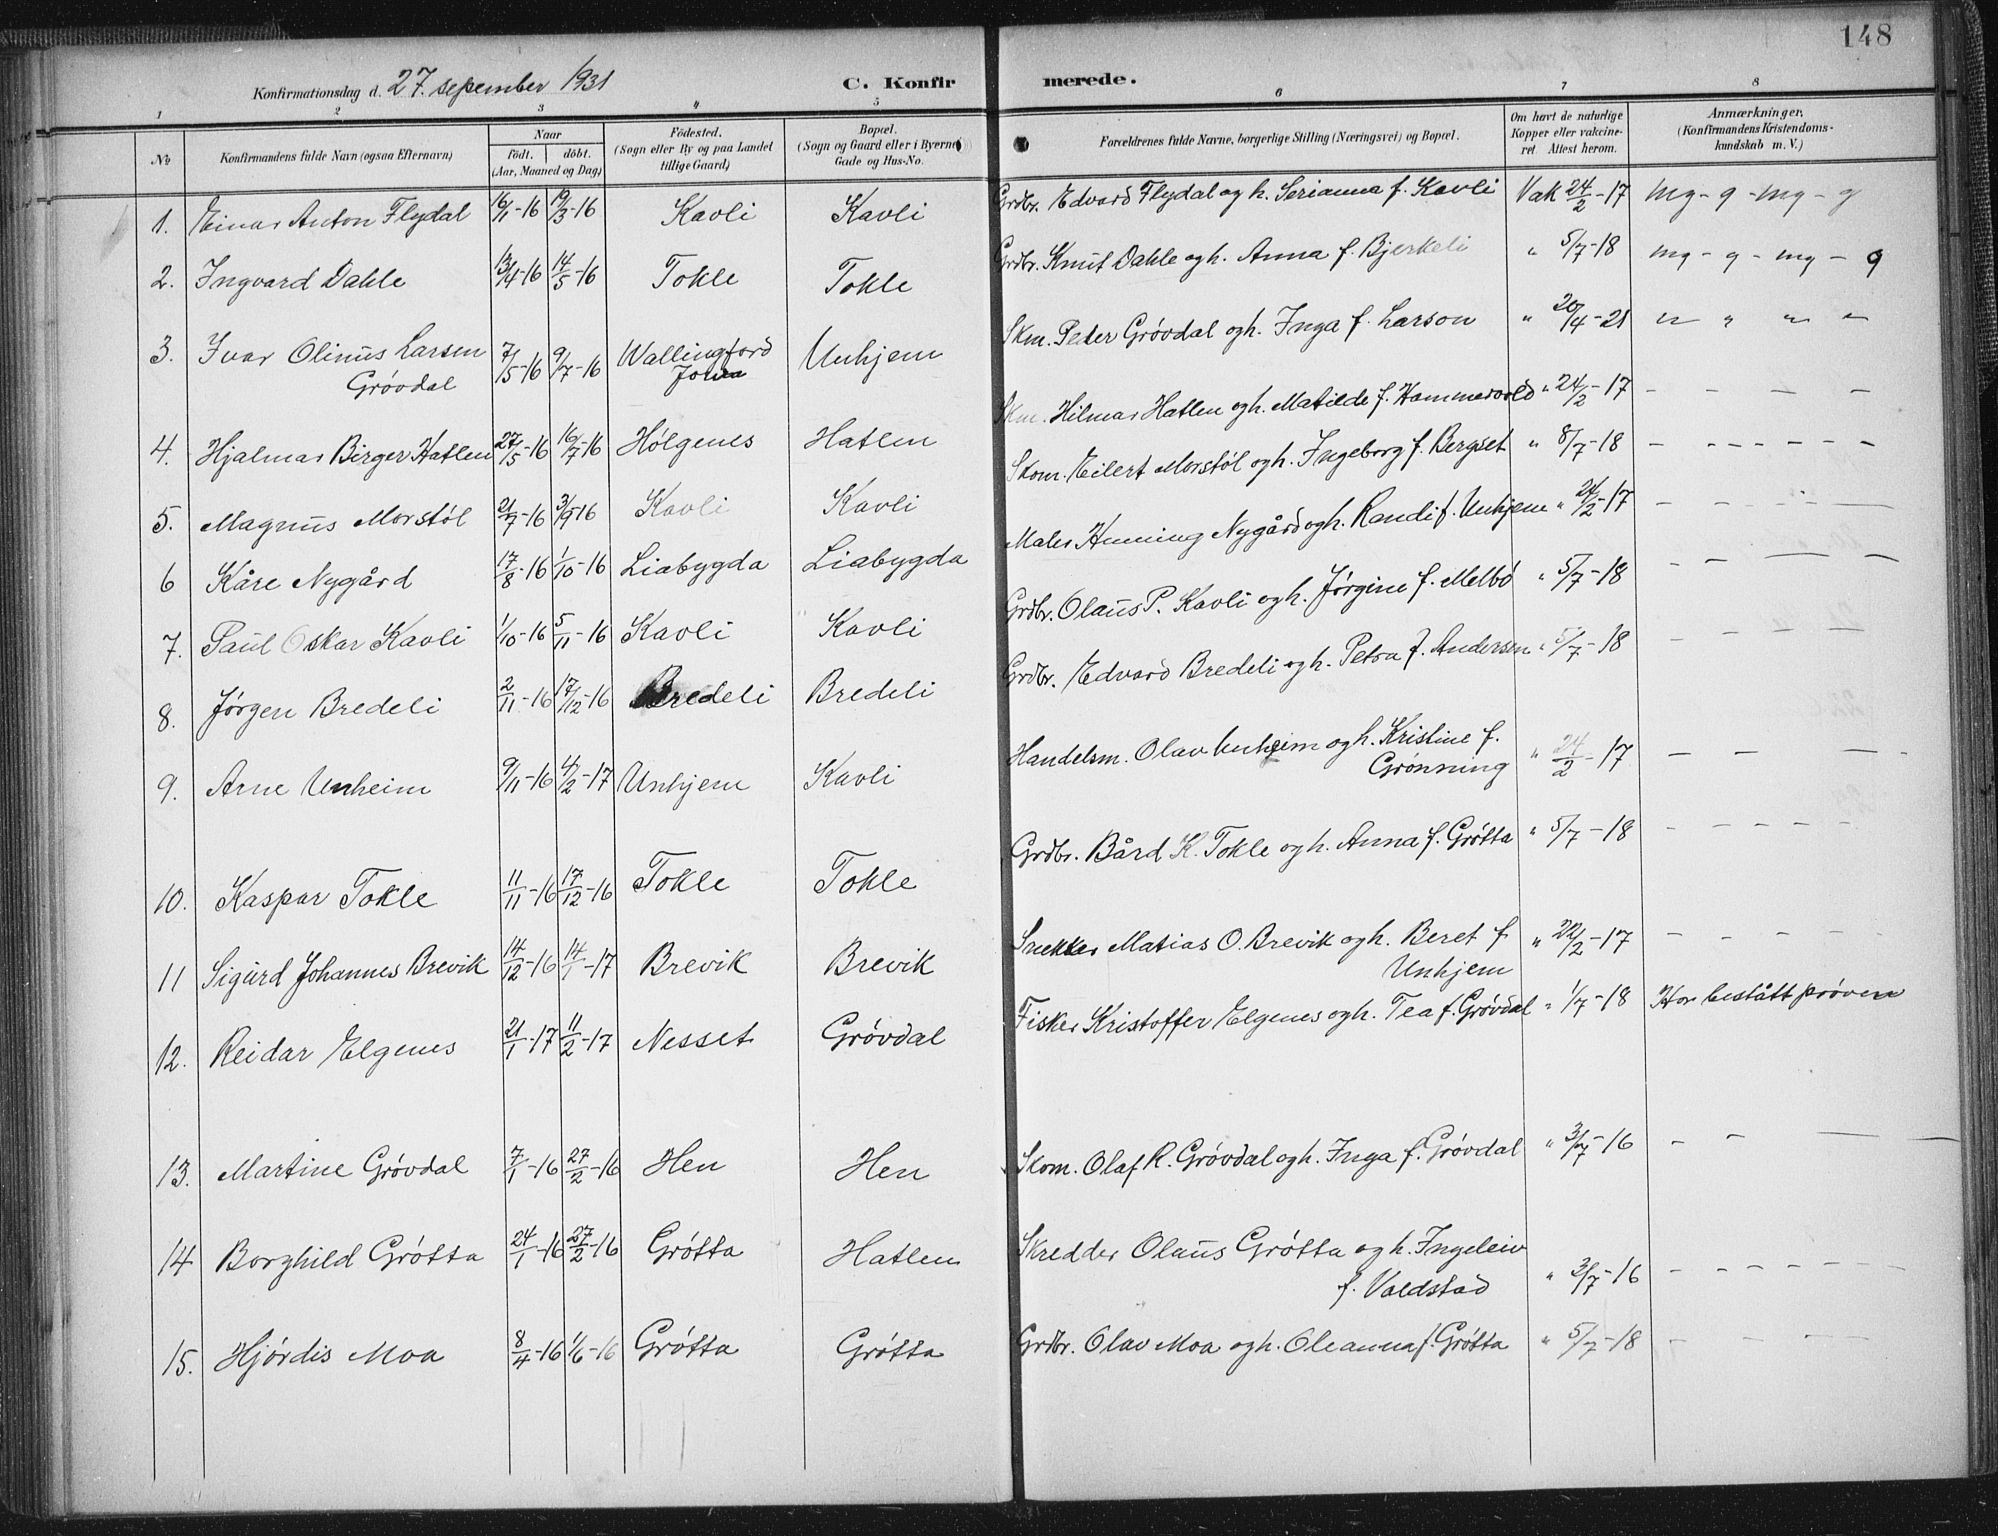 148
Konfirmationsdag d. 27. sepember 1931 C. Konfirmerede.
1 2 3 4 5 6 7 8
No Konfirmandens fulde Navn (ogsaa Efternavn) Naar født. (Aar, Maaned og Dag) døbt. Födested. (Sogn eller By og paa Landet tillige Gaard) Bopæl. (Sogn og Gaard eller i Byerne Gade og Hus-No. Forældrenes fulde Navne, borgerlige Stilling (Næringsvei) og Bopæl. Om havt de naturlige Kopper eller vakcineret. Attest herom. Anmærkninger. (Konfirmandens Kristendomskundskab m. V.)
1. Einar Anton Flydal 16/1-16 19/3-16 Kavli Kavli Grdbr. Edvard Flydal og h. Serianna f. Kavli Vak 24/2-17 mg - g - mg - g
2. Ingvard Dahle 13/4-16 14/5-16 Tokle Tokle Grdbr. Knut Dahle og h. Anna f. Bjerkeli " 5/7-18 mg - g - mg - g
3. Ivar Olinus Larsen Grøvdal 7/5-16 9/7-16 Wallingford Unhjem Skm. Peder Grøvdal og h. Inga f. Larson " 20/4-21 " " " "
4. Hjalmar Birger Hatlen 27/5-16 16/7-16 Hølgenes Hatlen Skm. Hilmar Hatlen og h. Matilde f. Hammervold " 24/2-17 - - - -
5. Magnus Morstøl 21/7-16 3/9-16 Kavli Kavli Skom. Eilert Morstøl og h. Ingeborg f. Bergset " 8/7-18 - - - - -
6 Kåre Nygård 17/8-16 1/10-16 Liabygda Liabygda Maler Henning Nygård og h. Randi f. Unhjem " 24/2-17 - - - -
7. Paul Oskar Kavli 1/10-16 5/11-16 Kavli Kavli Grdbr. Olaus P. Kavli og h. Jørgine f. Melbø " 5/7-18 - - - -
8. Jørgen Bredeli 2/11-16 17/12-16 Bredeli Bredeli Grdbr. Edvard Bredeli og h. Petra f. Andersen " 5/7-18 - - - - -
9. Arne Unheim 9/11-16 4/2-17 Unhjem Kavli Handelsm. Olav Unheim og h. Kristine f. Grønning " 24/2-17 - - - -
10. Kaspar Tokle 11/11-16 17/12-16 Tokle Tokle Grdbr. Bård K. Tokle og h. Anna f. Grøtta " 5/7-18 - - - - -
11 Sigurd Johannes Brevik 14/12-16 14/1-17 Brevik Brevik Snekker Matias O. Brevik og h. Beret f Unhjem " 22/2-17 - - - - -
12. Reidar Elgenes 21/1-17 11/2-17 Nesset Grøvdal Fisker Kristoffer Elgenes og h. Tea f. Grøvdal " 1/7-18 Har bestått prøven
13. Martine Grøvdal 7/1-16 27/2-16 Hen Hen Skom. Olaf R. Grøvdal og h. Inga f. Grøvdal " 3/7-16 - - - -
14 Borghild Grøtta 24/1-16 27/2-16 Grøtta Hatlen Skredder Olaus Grøtta og h. Ingeleiv f. Valdstad " 3/7-16 - - - - - -
15. Hjørdis Moa 8/4-16 1/6-16 Grøtta Grøtta Grdbr. Olav Moa og h. Oleanna f. Grøtta " 5/7-18 - - - -